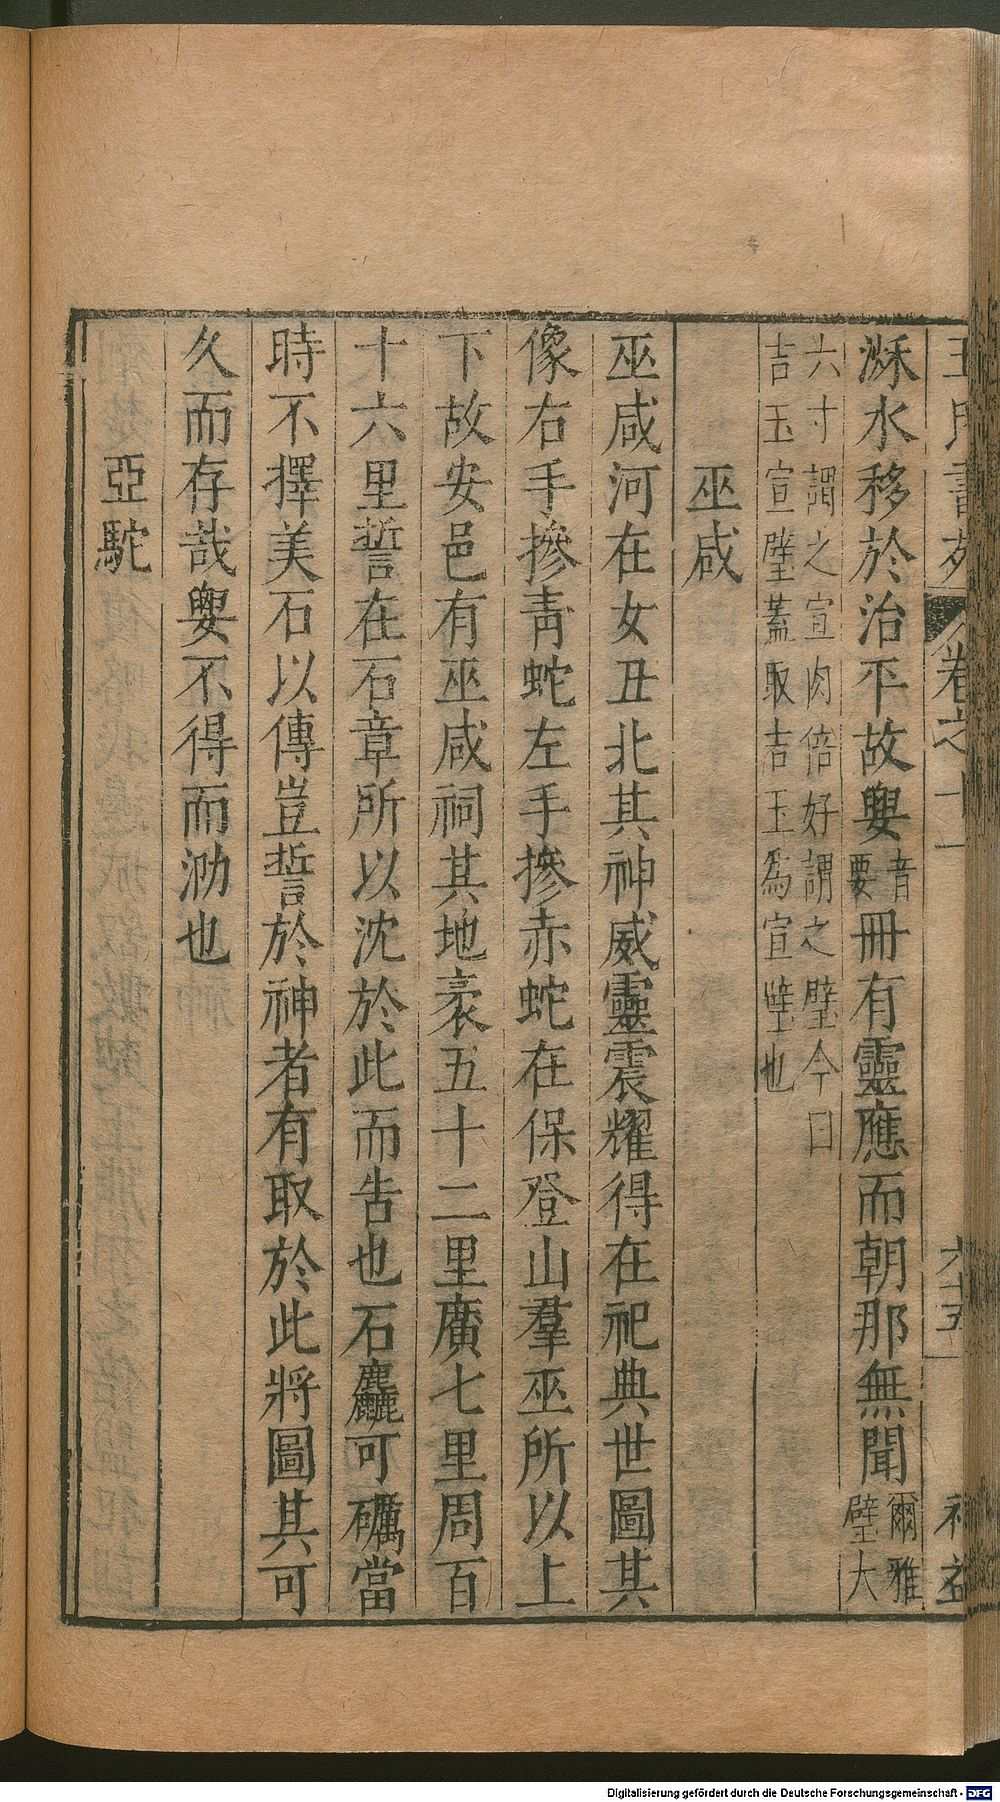 王氏書苑 卷之十 六十五 補益
湫水移於治平故㜲音要冊有靈應而朝那無聞爾雅璧大
六寸謂之宣肉倍好謂之璧今曰
吉玉宣璧蓋取吉玉為宣璧也
巫咸
巫咸河在女丑北其神威靈震耀得在祀典世圖其
像右手摻靑蛇左手摻赤蛇在保登山羣巫所以上
下故安邑有巫咸祠其地袤五十二里廣七里周百
十六里誓在石章所以沈於此而告也石麤可礪當
時不擇美石以傳豈誓於神者有取於此將圖其可
久而存哉㜲不得而泐也
亞駝
Digitalisierung gefördert durch die Deutsche Forschungsgemeinschaft - DFG